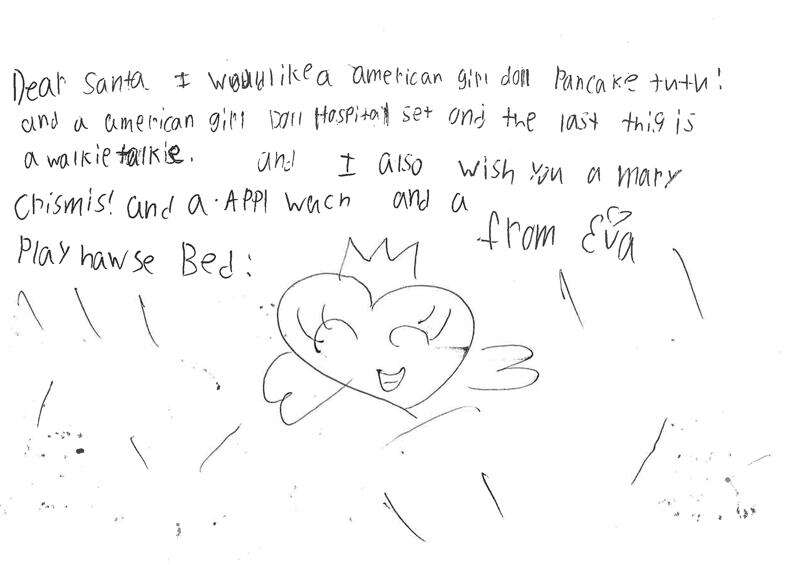 Dear Santa I would like a american girl doll Pancake tutu!
and a american girl Doll Hospital set and the last this is
a walkie talkie. and I also wish you a mary
Crismis! and a APPl wach and a
Play hawse Bed: from Eva